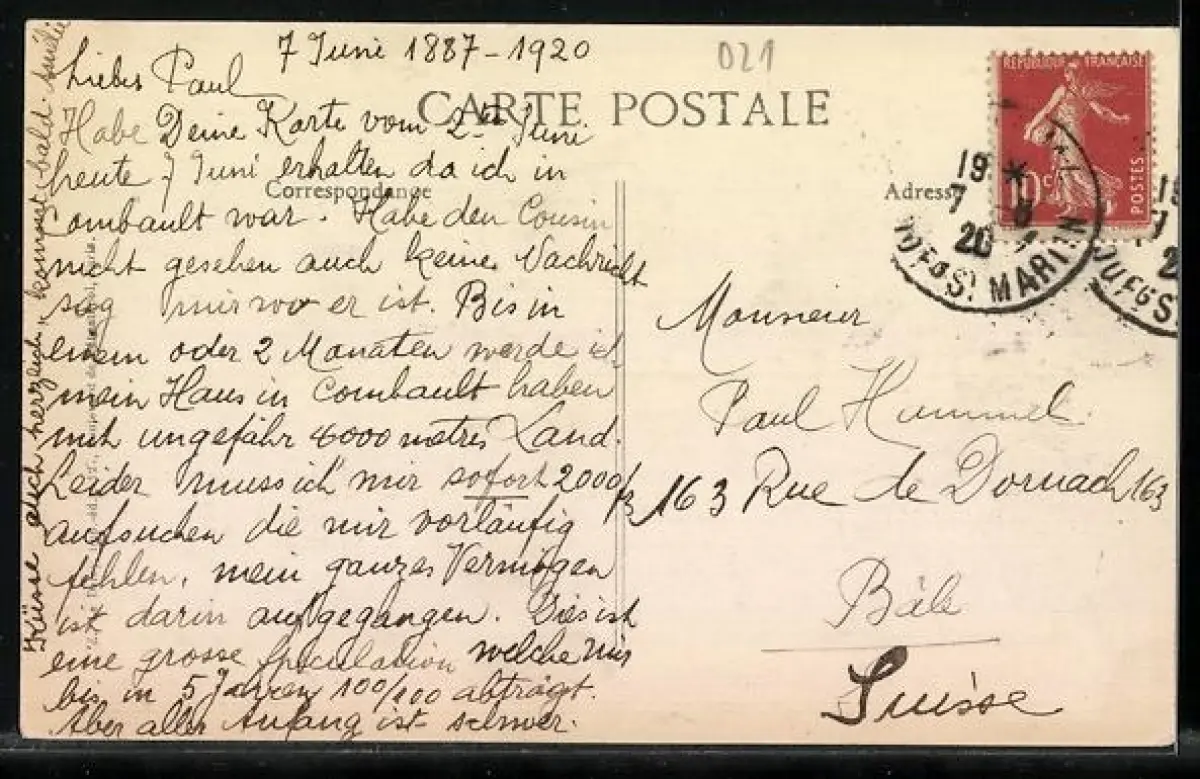 7 Juni 1887-1920
021
Liebes Paul
CARTE POSTALE
Habe Deine Karte vom 2ten Juni
heute 7 Juni erhalten da ich in
Correspondance
Combault war. Habe den Cousin
nicht gesehen auch keine Nachricht
sag mir wo er ist. Bis in
einem oder 2 Monaten werde ich
mein Haus in Combault haben
mit ungefähr 4000 metres Land.
Leider muss ich mir sofort 2000 fr
aufsuchen die mir vorläufig
fehlen, mein ganzes Vermögen
ist darin aufgegangen. Dies ist
eine grosse Speculation welche mir
bis in 5 Jahren 100/100 abträgt.
Aber aller Anfang ist schwer.
Küsse euch herzlich, kommt bald
Adresse
Monsieur
Paul Hummel
163 Rue de Dornach 163
Bâle
Suisse
REPUBLIQUE FRANÇAISE
10c
POSTES
19 *
7 - 6
20
FG ST MARTIN